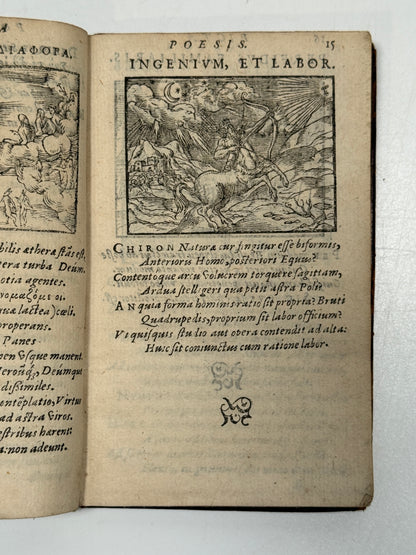 A
ΔΙΑΦΟΡΑ.
bilis ætherea
tera turba Deum.
otia agentes.
ca lactea) cœli.
properans.
Panes
men Vsque manent.
Deũmque
dissimiles.
contẽplatio, Virtus
ad astra Viros.
estribus hærent:
a: non adeunt.
POESIS. 15
INGENIVM, ET LABOR.
CHIRON Naturæ cur fingitur esse biformis,
Anterioris Homo, posteriori Equus?
Contentoque arcu Volucrem torquere sagittam,
Arqua stelligeri qua petit astra Poli?
AN quia forma hominis ratio sit propria? Bruti
Quadrupedis, proprium sit labor officium?
Vt quisquis studio aut opera contendit ad alta:
Huic sit coniunctus cum ratione labor.